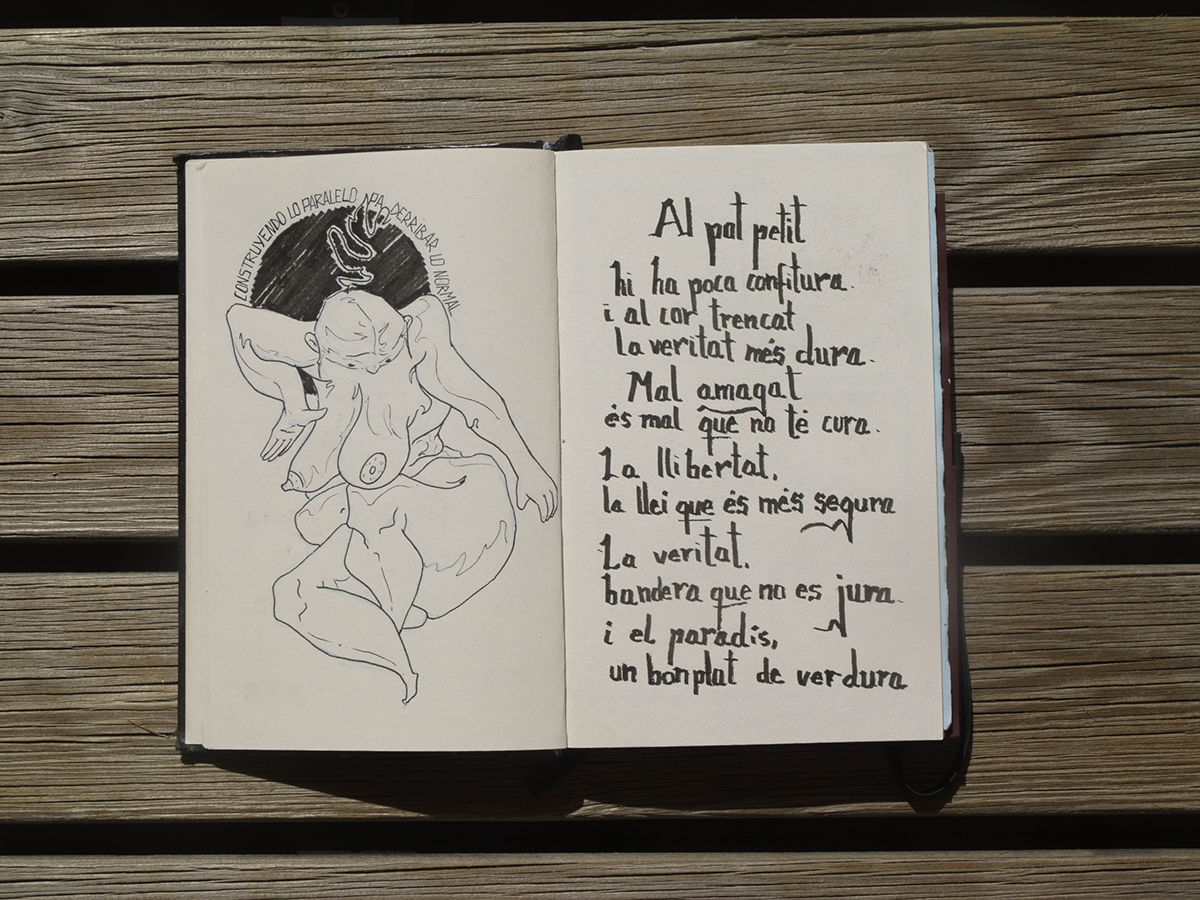 CONSTRUYENDO LO PARALELO PA DERRIBAR LO NORMAL
Al pot petit
hi ha poca confitura.
i al cor trencat
la veritat més dura.
Mal amagat
és mal que no té cura.
La llibertat,
la llei que és més segura
La veritat,
bandera que no es jura.
i el paradís,
un bon plat de verdura